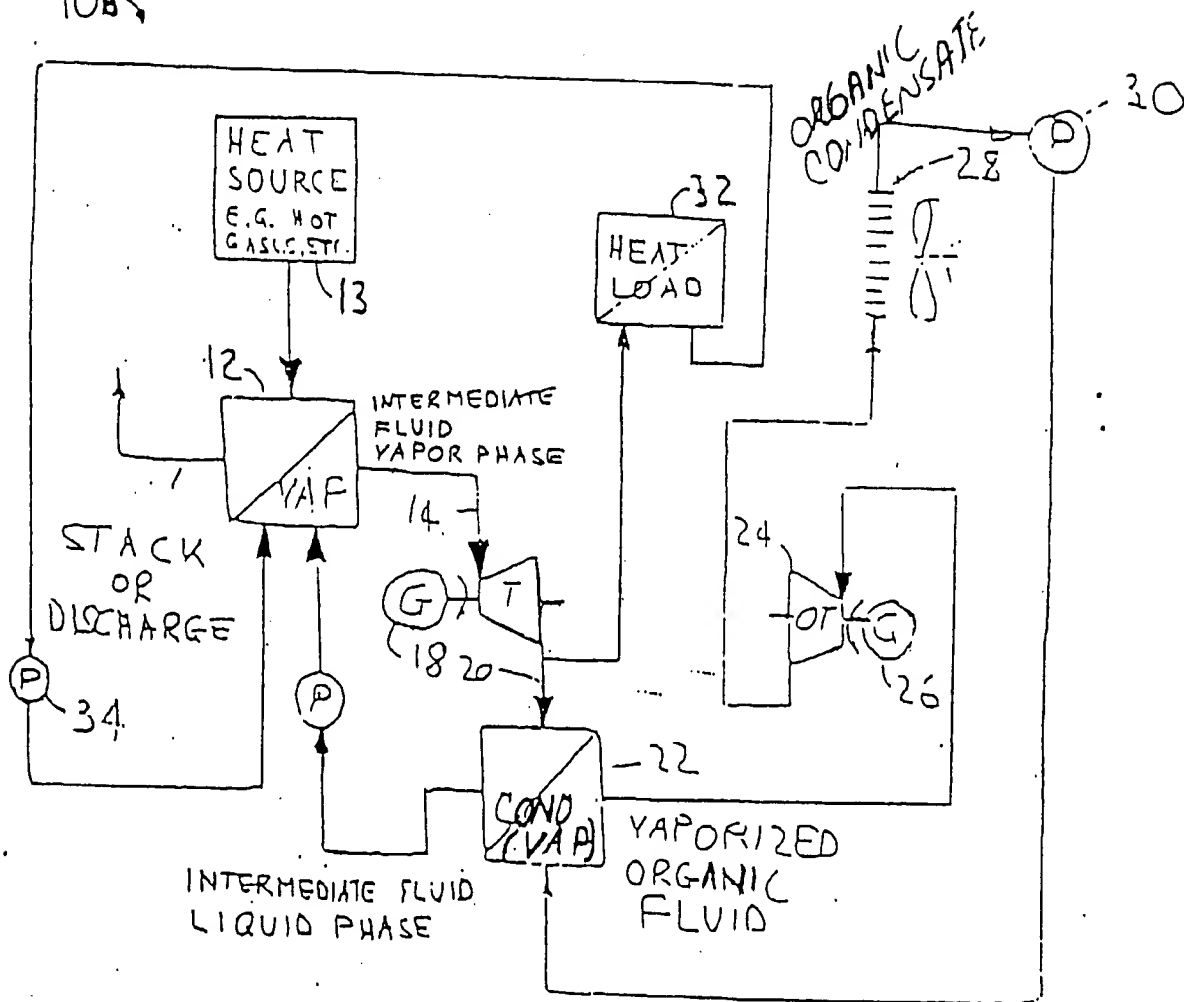 10B
HEAT
SOURCE
E.G. HOT
GASES, ETC.
13
ORGANIC
CONDENSATE
30
P
28
32
HEAT
LOAD
12
VAP
INTERMEDIATE
FLUID
VAPOR PHASE
14
STACK
OR
DISCHARGE
G
T
18
20
24
OT
G
26
P
34
P
22
COND
(VAP)
VAPORIZED
ORGANIC
FLUID
INTERMEDIATE FLUID
LIQUID PHASE